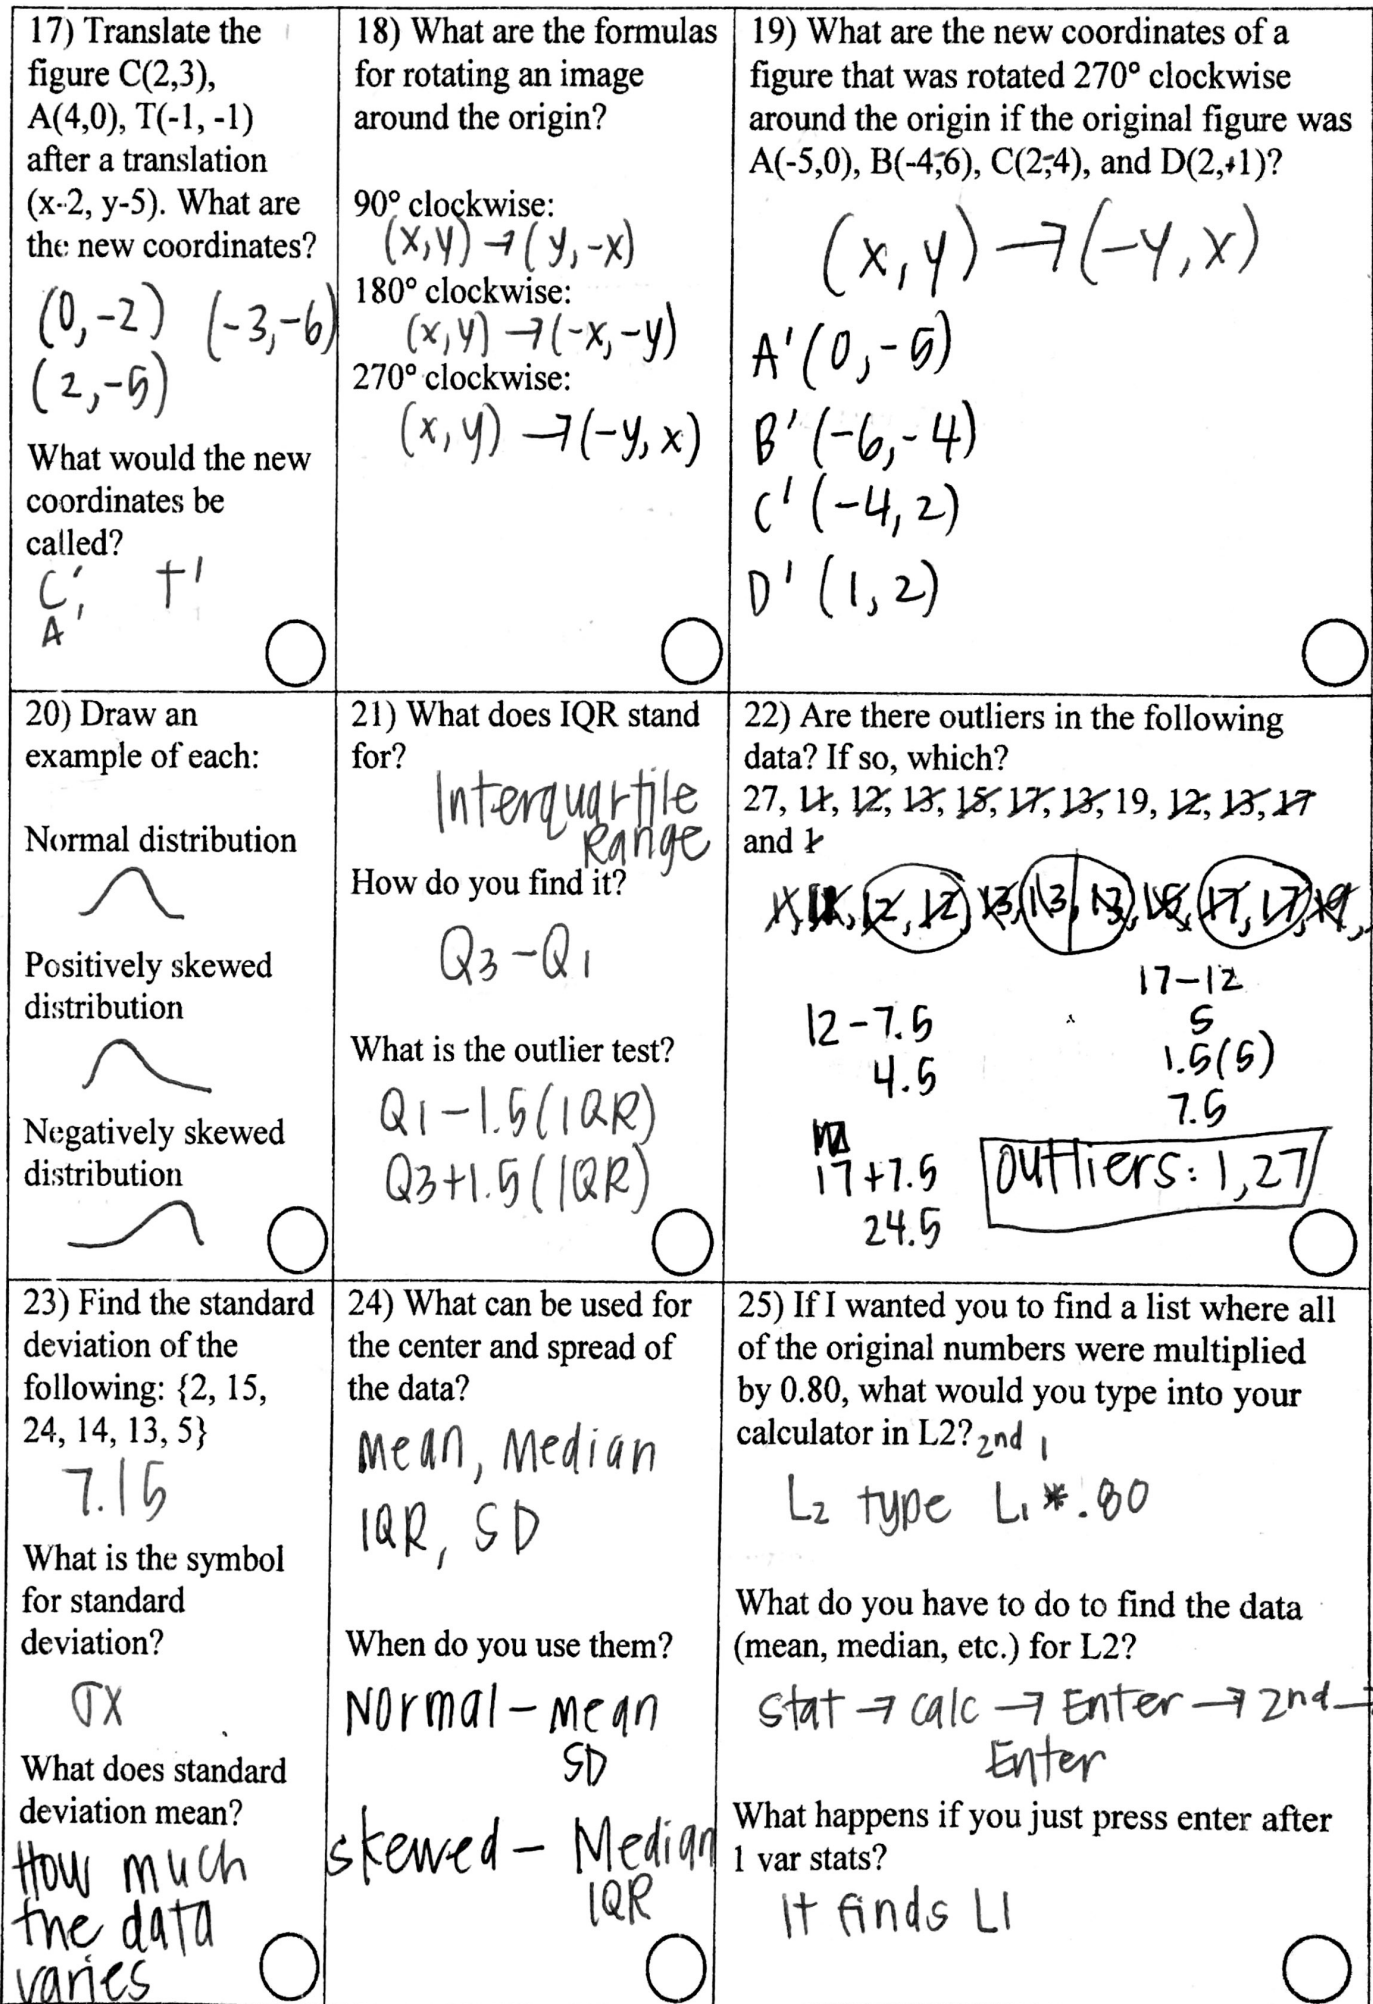 17) Translate the
figure C(2,3),
A(4,0), T(-1, -1)
after a translation
(x-2, y-5). What are
the new coordinates?
(0,-2) (-3,-6)
(2,-5)
What would the new
coordinates be
called?
C', T'
A'
18) What are the formulas
for rotating an image
around the origin?
90° clockwise:
(x,y) → (y,-x)
180° clockwise:
(x,y) → (-x,-y)
270° clockwise:
(x,y) → (-y,x)
19) What are the new coordinates of a
figure that was rotated 270° clockwise
around the origin if the original figure was
A(-5,0), B(-4,6), C(2,4), and D(2,-1)?
(x,y) → (-y,x)
A'(0,-5)
B'(-6,-4)
C'(-4,2)
D'(1,2)
20) Draw an
example of each:
Normal distribution
Positively skewed
distribution
Negatively skewed
distribution
21) What does IQR stand
for?
Interquartile
Range
How do you find it?
Q3-Q1
What is the outlier test?
Q1-1.5(IQR)
Q3+1.5(IQR)
22) Are there outliers in the following
data? If so, which?
27, 11, 12, 13, 15, 17, 13, 19, 12, 13, 17
and 1
1, 11, 12, 12, 13, 13, 13, 15, 17, 17, 19,
17-12
5
1.5(5)
7.5
12-7.5
4.5
17+7.5
24.5
outliers: 1,27
23) Find the standard
deviation of the
following: {2, 15,
24, 14, 13, 5}
7.15
What is the symbol
for standard
deviation?
σx
What does standard
deviation mean?
How much
the data
varies
24) What can be used for
the center and spread of
the data?
Mean, Median
IQR, SD
When do you use them?
Normal - mean
SD
skewed - Median
IQR
25) If I wanted you to find a list where all
of the original numbers were multiplied
by 0.80, what would you type into your
calculator in L2? 2nd 1
L2 type L1*.80
What do you have to do to find the data
(mean, median, etc.) for L2?
stat → calc → Enter → 2nd →
Enter
What happens if you just press enter after
1 var stats?
It finds L1